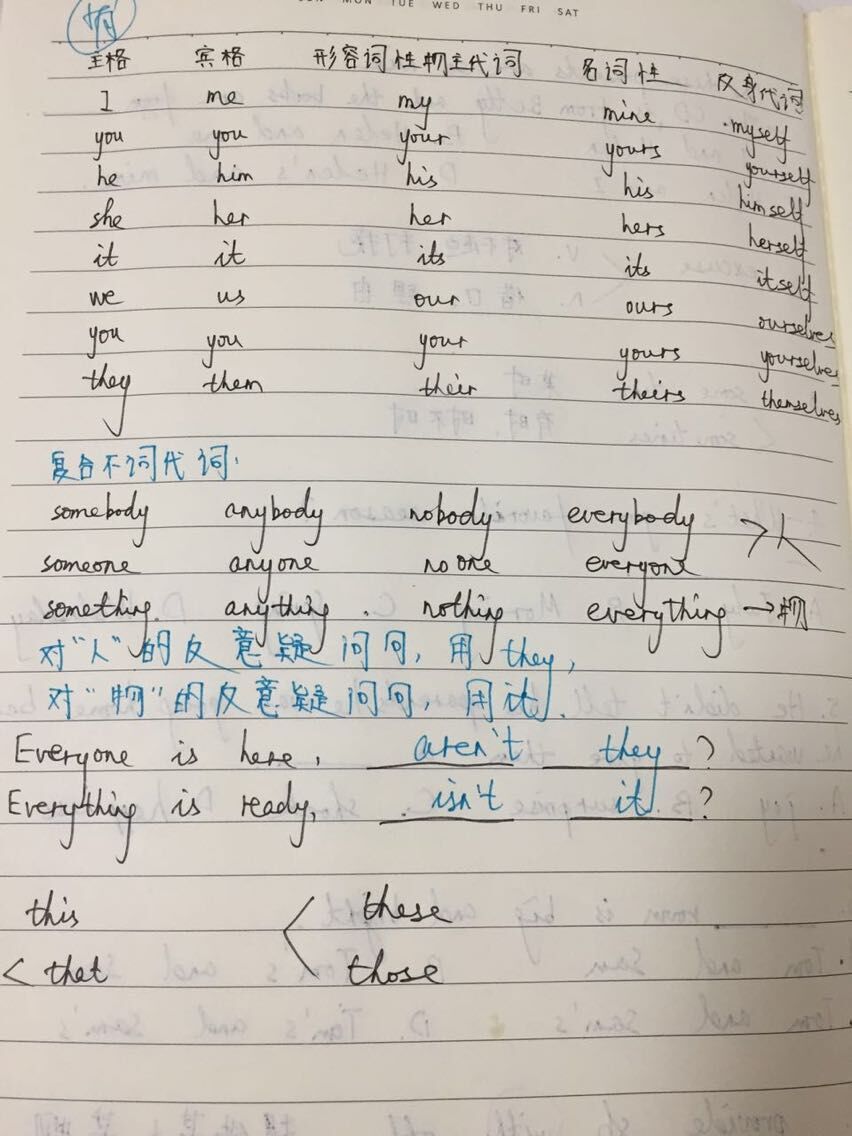 MON TUE WED THU FRI SAT
主格 宾格 形容词性物主代词 名词性 反身代词
I me my mine myself
you you your yours yourself
he him his his himself
she her her hers herself
it it its its itself
we us our ours ourselves
you you your yours yourselves
they them their theirs themselves
复合不词代词:
somebody anybody nobody everybody → 人
someone anyone no one everyone
something. anything. nothing everything → 物
对“人”的反意疑问句, 用 they,
对“物”的反意疑问句, 用 it.
Everyone is here, aren't they ?
Everything is ready, isn't it ?
this < these
< that those